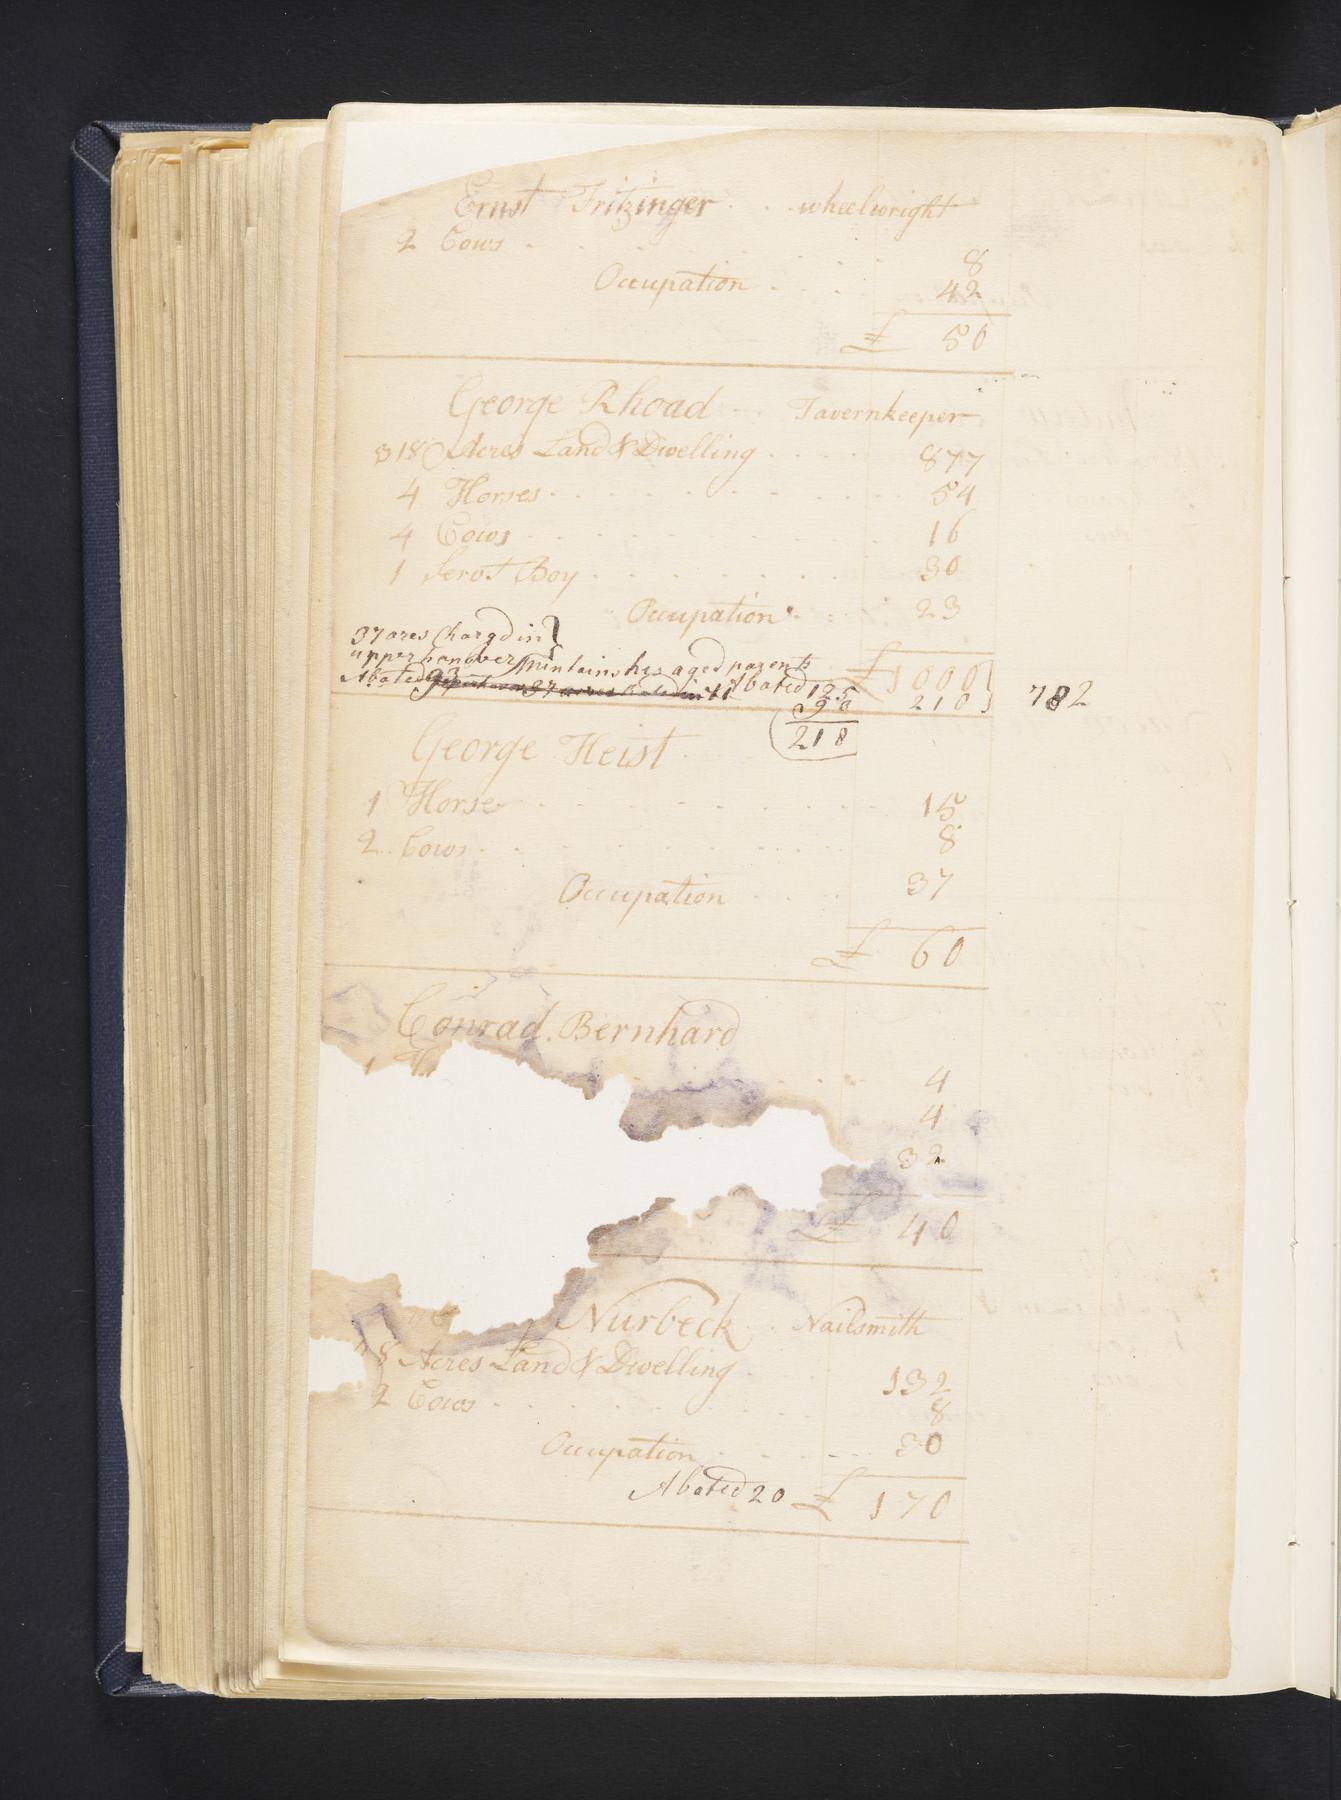 Ernst Fritzinger . . wheelwright
2 Cows . . . . 8
Occupation . . . . 42
£ 50
George Rhoad . . Tavernkeeper
318 Acres Land & Dwelling . . . . 877
4 Horses . . . . . . . . 54
4 Cows . . . . . . . . 16
1 Servt Boy . . . . . . . 30
Occupation . . . 23
37 acres Chargd in
upper hanover Maintains his aged parents £ 1000
Abated 93 Abated 125 210 782
93
218
George Heist . . .
1 Horse . . . . . . . . 15
2 Cows . . . . . . . . 8
Occupation . . . . 37
£ 60
Conrad Bernhard
1 4
4
32
£ 40
Nurbeck . . Nailsmith
8 Acres Land & Dwelling . . . 132
2 Cows . . . . . . . . 8
Occupation . . . . 30
Abated 20 £ 170